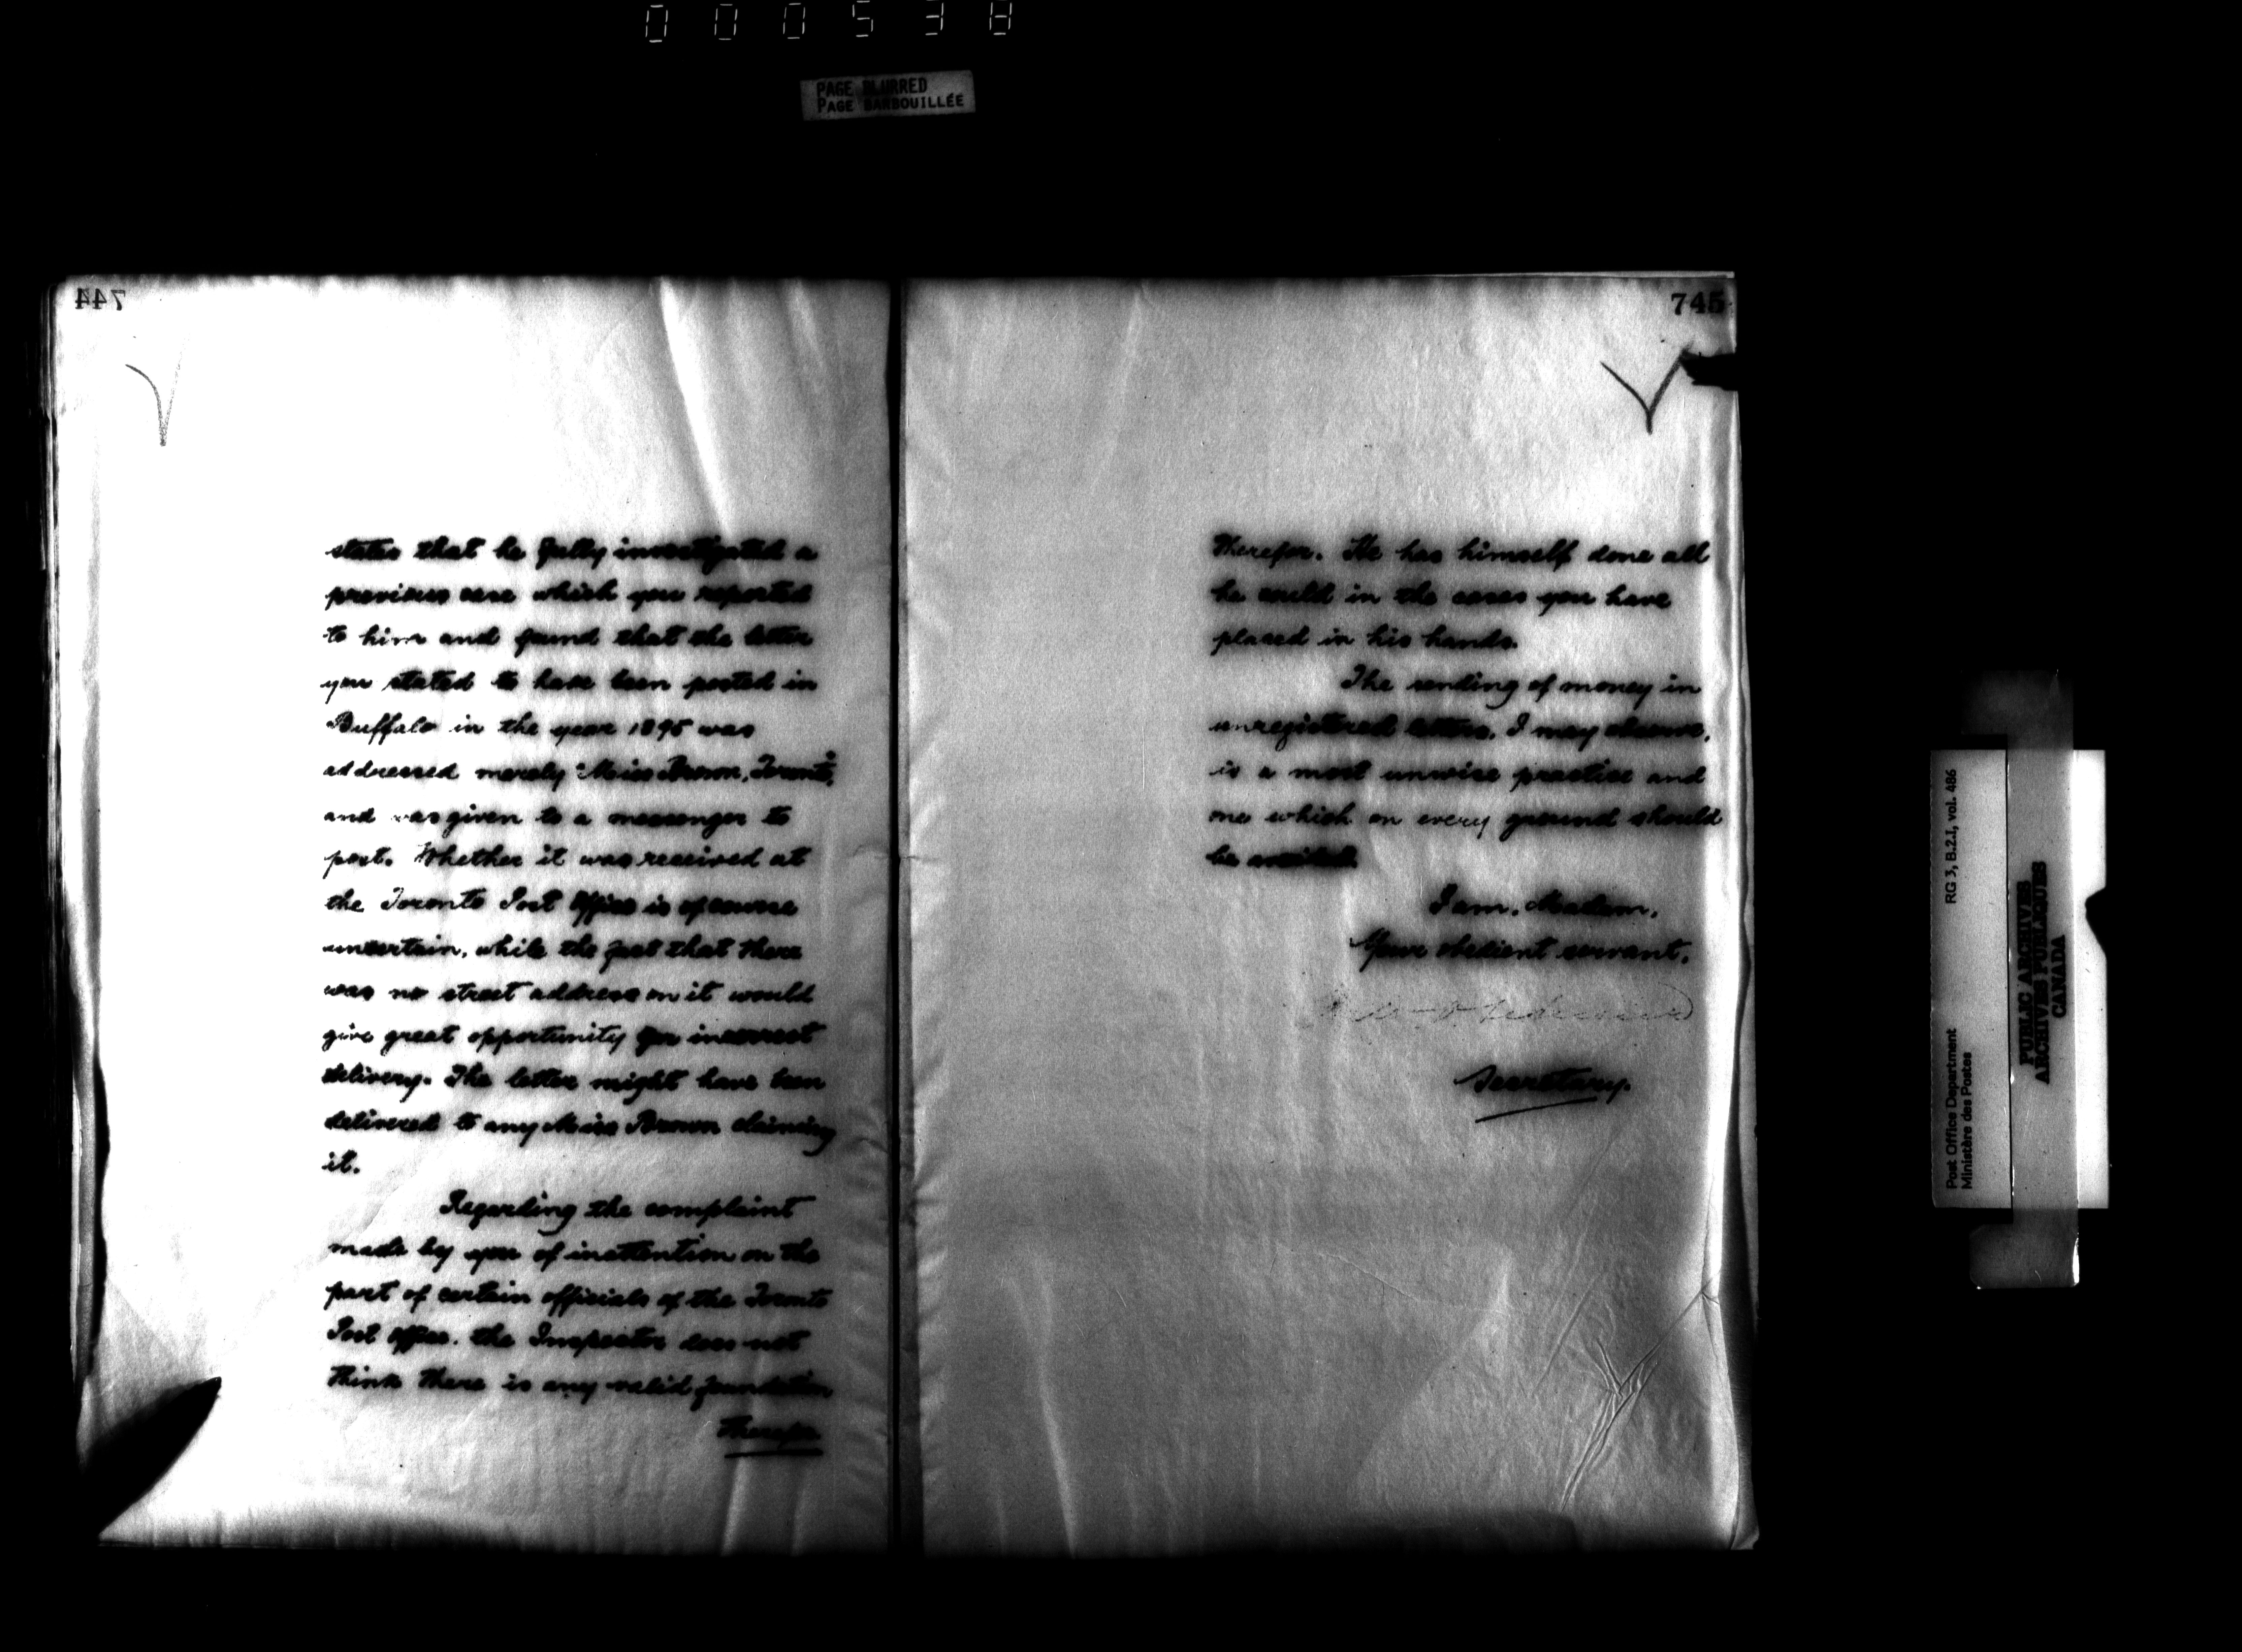 000538
PAGE BLURRED
PAGE BARBOUILLÉE
744
states that he fully investigated a
previous case which you reported
to him and found that the letter
you stated to have been posted in
Buffalo in the year 1895 was
addressed merely "Miss Brown, Toronto",
and was given to a messenger to
post. Whether it was received at
the Toronto Post Office is of course
uncertain, while the fact that there
was no street address on it would
give great opportunity for incorrect
delivery. The letter might have been
delivered to any Miss Brown claiming
it.
Regarding the complaint
made by you of inattention on the
part of certain officials of the Toronto
Post Office, the Inspector does not
think there is any valid foundation
therefor
745
therefor. He has himself done all
he could in the cases you have
placed in his hands.
The sending of money in
unregistered letters, I may observe,
is a most unwise practice and
one which on every ground should
be avoided.
I am, Madam,
Your obedient servant,
Secretary.
Post Office Department
Ministère des Postes
RG 3, B.2.I, vol. 486
PUBLIC ARCHIVES
ARCHIVES PUBLIQUES
CANADA